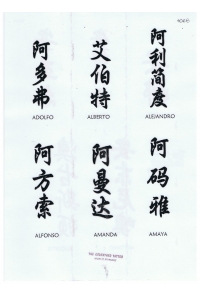 阿多弗 艾伯特 阿利简度
ADOLFO ALBERTO ALEJANDRO
阿方索 阿曼达 阿码雅
ALFONSO AMANDA AMAYA